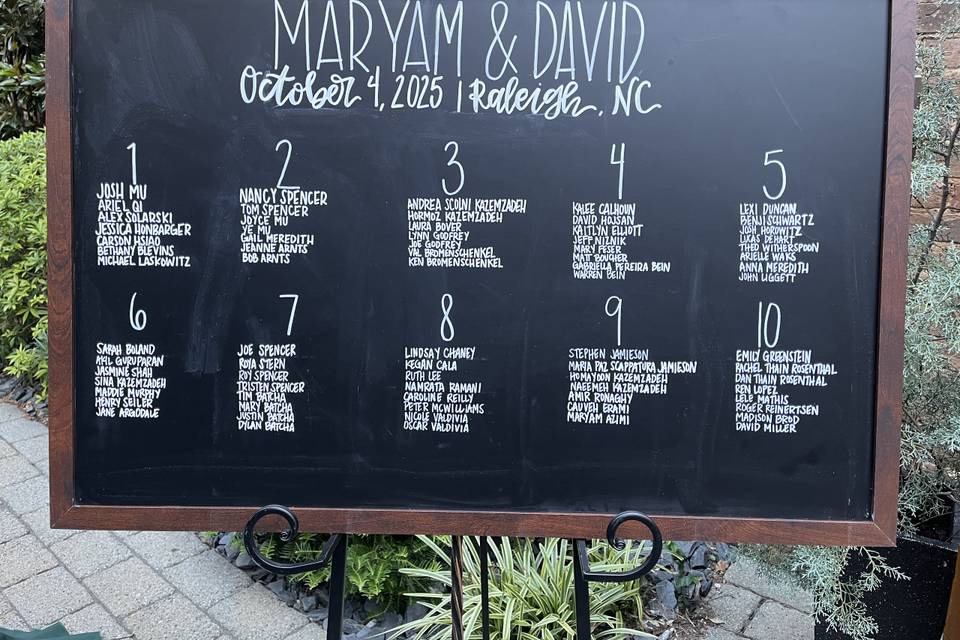 MARYAM & DAVID
October 4, 2025 | Raleigh, NC
1
JOSH MU
ARIEL QI
ALEX SOLARSKI
JESSICA HONBARGER
CARSON HSIAO
BETHANY BLEVINS
MICHAEL LASKOWITZ
2
NANCY SPENCER
TOM SPENCER
JOYCE MU
YE MU
GAIL MEREDITH
JEANNE ARNTS
BOB ARNTS
3
ANDREA SCOLNI KAZEMZADEH
HORMOZ KAZEMZADEH
LAURA BOVER
LYNN GODFREY
JOE GODFREY
VAL BROMENSCHENKEL
KEN BROMENSCHENKEL
4
KALEE CALHOUN
DAVID HOJSAN
KAITLYN ELLIOTT
JEFF NIZNIK
MARY PESER
MATT BOUCHER
GABRIELLA PEREIRA BEIN
WARREN BEIN
5
LEXI DUNCAN
BENJI SCHWARTZ
JOSH HOROWITZ
LUCAS DEHART
THEO WITHERSPOON
ARIELLE WAKS
ANNA MEREDITH
JOHN LIGGETT
6
SARAH BOLAND
AKIL GURUPARAN
JASMINE SHAH
SINA KAZEMZADEH
MADDIE MURPHY
HENRY SEILER
JANE ARGODALE
7
JOE SPENCER
ROYA STERN
ROY SPENCER
TRISTEN SPENCER
TIM BATCHA
MARY BATCHA
JUSTIN BATCHA
DYLAN BATCHA
8
LINDSAY CHANEY
KEGAN CALA
RUTH LEE
NAMRATA RAMANI
CAROLINE REILLY
PETER MCWILLIAMS
NICOLE VALDIVIA
OSCAR VALDIVIA
9
STEPHEN JAMIESON
MARIA PAZ SCAPPATURA JAMIESON
HOMAYOON KAZEMZADEH
NAEEMEH KAZEMZADEH
AMIR RONAGHY
CAUVEH ERAMI
MARYAM AZIMI
10
EMILY GREENSTEIN
RACHEL THAIN ROSENTHAL
DAN THAIN ROSENTHAL
REN LOPEZ
LELE MATHIS
ROGER REINERTSEN
MADISON BROD
DAVID MILLER